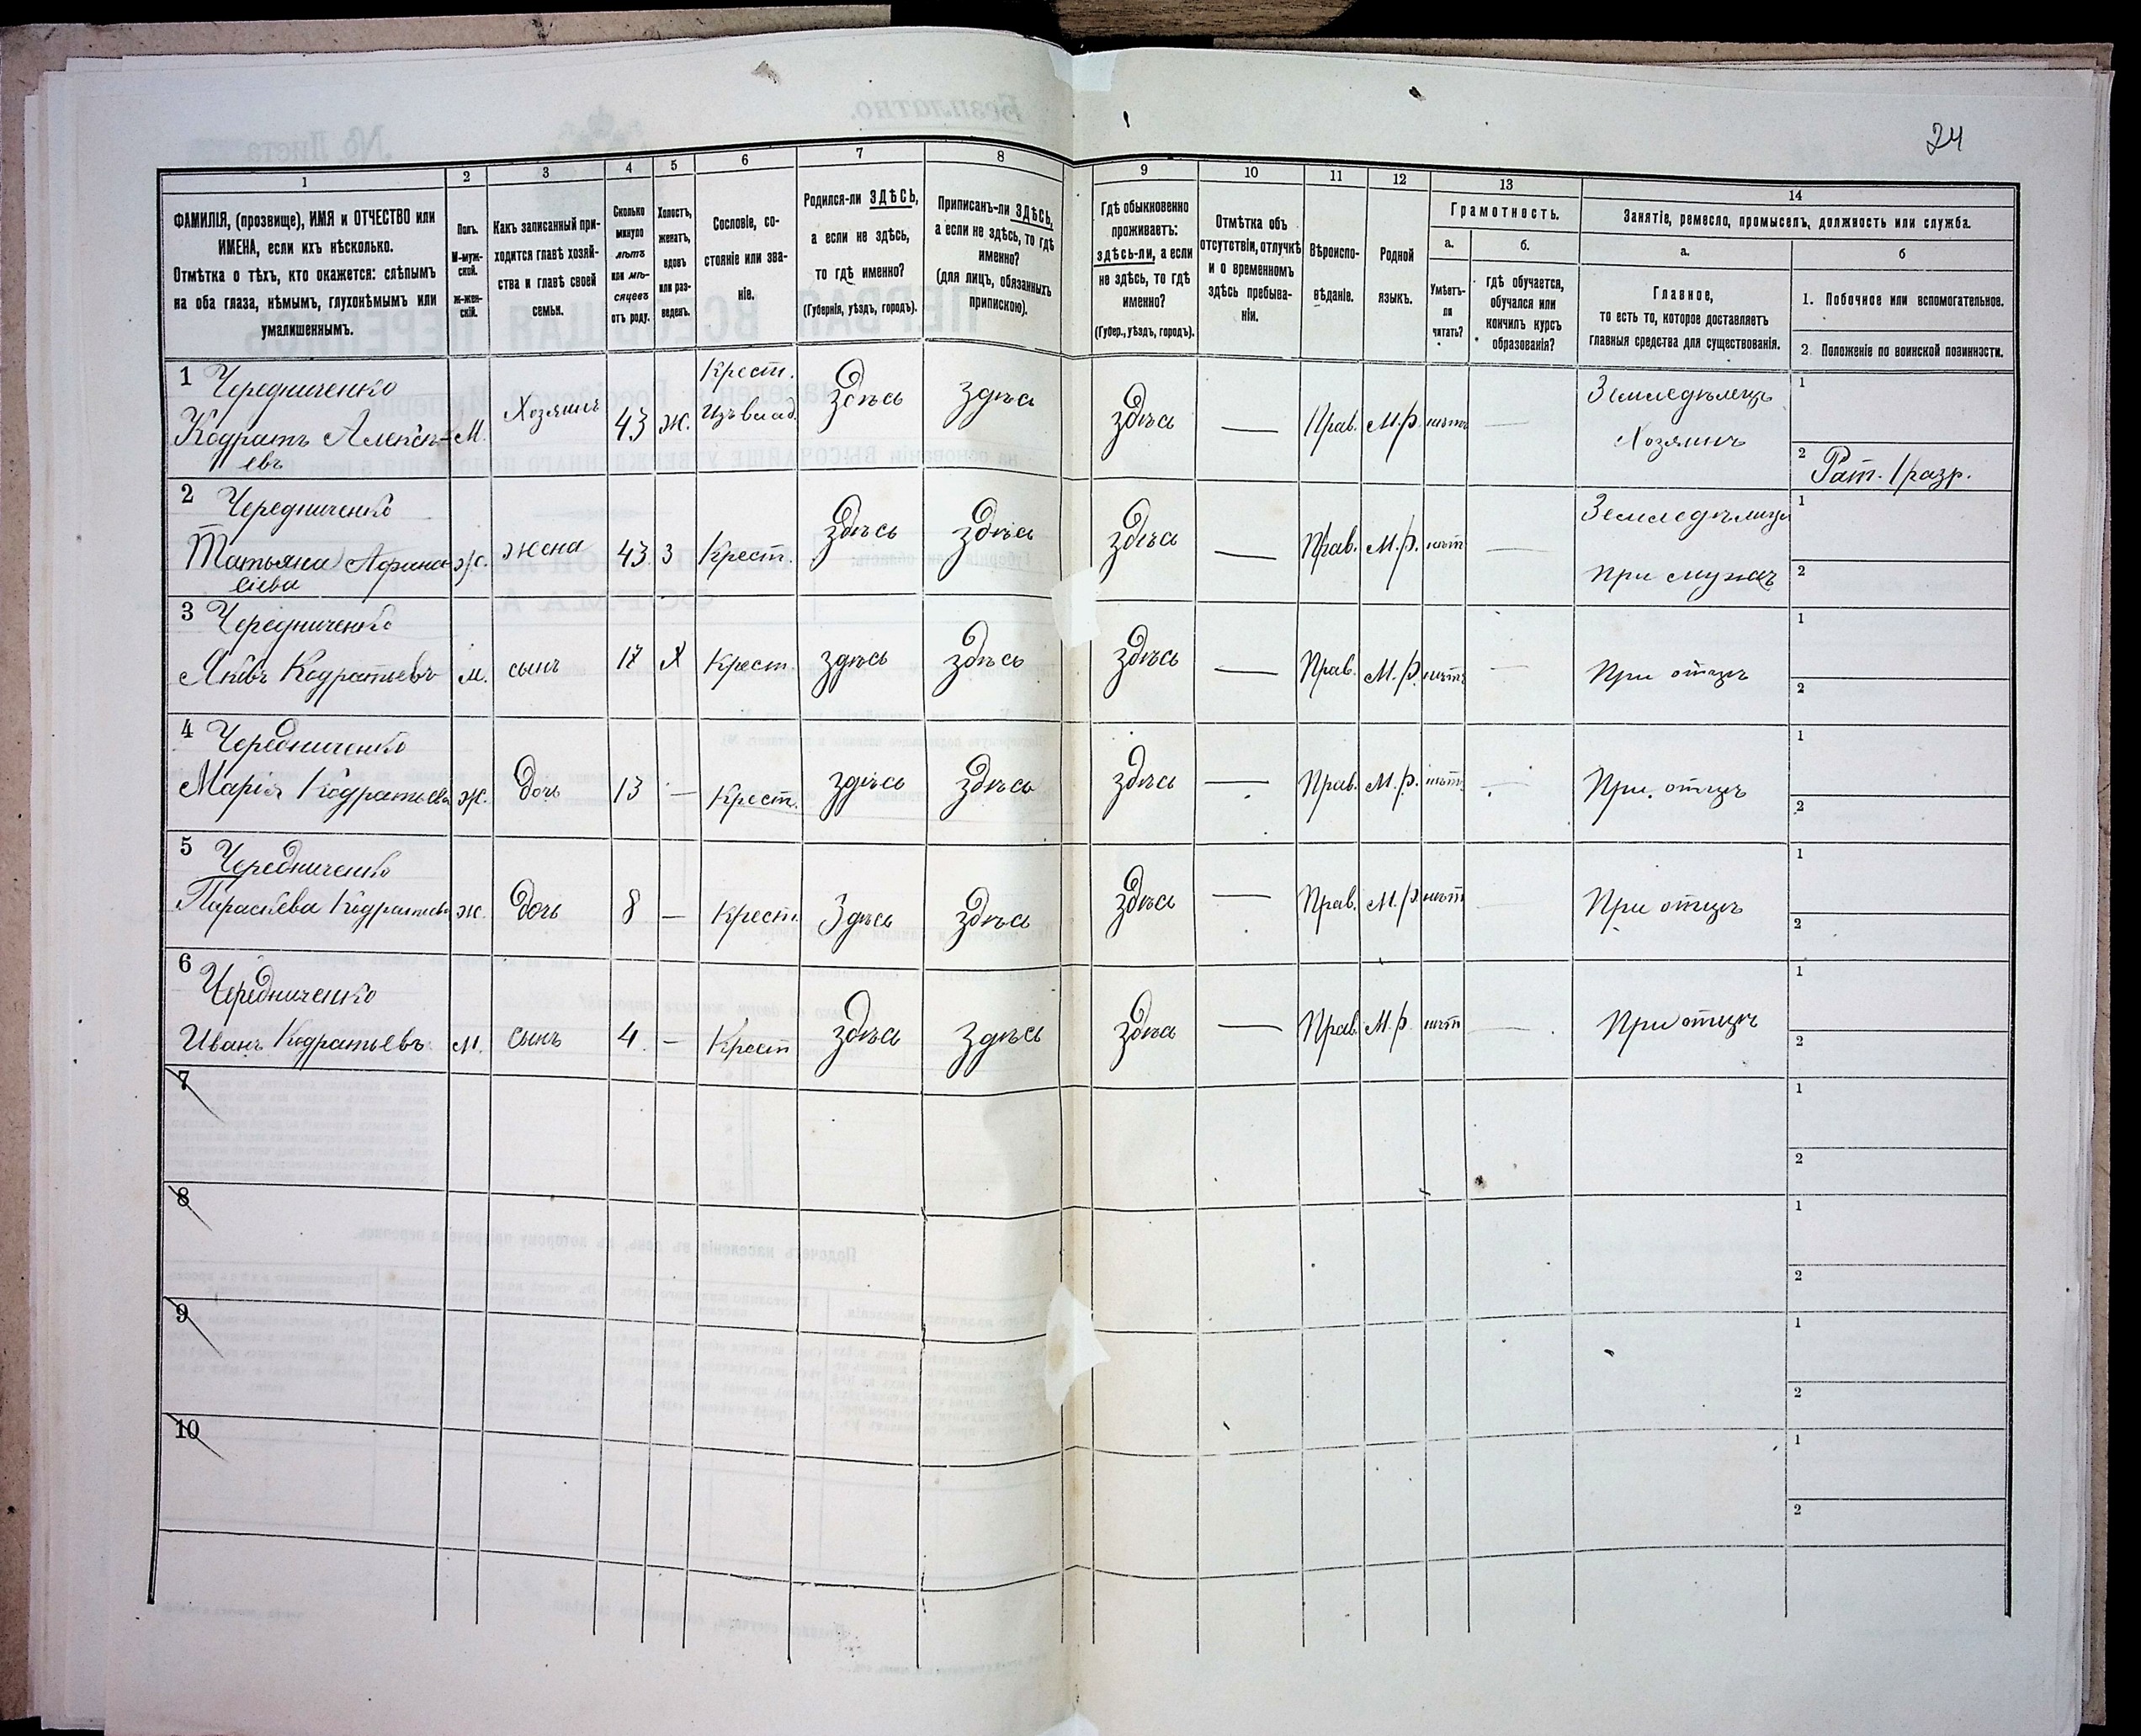 24
1
2
3
4
5
6
7
8
9
10
11
12
13
14
ФАМИЛІЯ, (прозвище), ИМЯ и ОТЧЕСТВО или
ИМЕНА, если ихъ нѣсколько.
Отмѣтка о тѣхъ, кто окажется: слѣпымъ
на оба глаза, нѣмымъ, глухонѣмымъ или
умалишеннымъ.
Полъ.
М-муж-
ской.
ж-жен-
скій.
Какъ записанный при-
ходится главѣ хозяй-
ства и главѣ своей
семьи.
Сколько
минуло
лѣтъ
или мѣ-
сяцевъ
отъ роду.
Холостъ,
женатъ,
вдовъ
или раз-
веденъ.
Сословіе, со-
стояніе или зва-
ніе.
Родился-ли ЗДѢСЬ,
а если не здѣсь,
то гдѣ именно?
(Губернія, уѣздъ, городъ).
Приписанъ-ли ЗДѢСЬ,
а если не здѣсь, то гдѣ
именно?
(для лицъ, обязанныхъ
припискою).
Гдѣ обыкновенно
проживаетъ:
здѣсь-ли, а если
не здѣсь, то гдѣ
именно?
(Губер., уѣздъ, городъ).
Отмѣтка объ
отсутствіи, отлучкѣ
и о временномъ
здѣсь пребыва-
ніи.
Вѣроиспо-
вѣданіе.
Родной
языкъ.
Грамотность.
а.
Умѣетъ-
ли
читать?
б.
Гдѣ обучается,
обучался или
кончилъ курсъ
образованія?
Занятіе, ремесло, промыселъ, должность или служба.
а.
Главное,
то есть то, которое доставляетъ
главныя средства для существованія.
б
1. Побочное или вспомогательное.
2. Положеніе по воинской повинности.
1 Чередниченко
Кодратъ Алексѣ-
евъ
М.
Хозяинъ
43
ж.
Крест.
Изъ влад.
Здѣсь
здѣсь
здѣсь
—
Прав.
М.р.
нѣтъ
—
Земледѣлецъ
Хозяинъ
1
2 Рат. 1 разр.
2 Чередниченко
Татьяна Афана
сіева
ж.
жена
43.
З
Крест.
здѣсь
здѣсь
здѣсь
—
Прав.
М.р.
нѣт
—
Земледѣлица
при мужѣ
1
2
3 Чередниченко
Яковъ Кодратьевъ
м.
сынъ
17
Х
Крест.
здѣсь
здѣсь
здѣсь
—
Прав.
М.р.
нѣтъ
—
При отцѣ
1
2
4 Чередниченко
Марія Кодратьева
ж.
дочь
13
—
Крест.
здѣсь
здѣсь
здѣсь
—
Прав.
М.р.
нѣтъ
—
При отцѣ
1
2
5 Чередниченко
Параскева Кодратьева
ж.
дочь
8
—
Крест.
Здѣсь
здѣсь
здѣсь
—
Прав.
М.р.
нѣтъ
—
При отцѣ
1
2
6 Чередниченко
Иванъ Кодратьевъ
М.
сынъ
4.
—
Крест
здѣсь
здѣсь
здѣсь
—
Прав.
М.р.
нѣтъ
—
При отцѣ
1
2
7
1
2
8
1
2
9
1
2
10
1
2